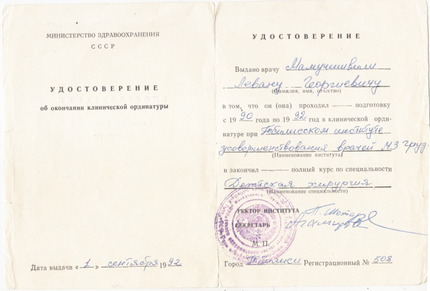 МИНИСТЕРСТВО ЗДРАВООХРАНЕНИЯ
СССР
УДОСТОВЕРЕНИЕ
об окончании клинической ординатуры
Дата выдачи « 1 » сентября 1992
УДОСТОВЕРЕНИЕ
Выдано врачу
Левану Георгиевичу
(фамилия, имя, отчество)
в том, что он (она) проходил подготовку
с 1990 года по 1992 год в клинической орди-
натуре при Тбилисском институте
усовершенствования врачей МЗ Груз
(Наименование института)
и закончил полный курс по специальности
Детская хирургия
(Наименование специальности)
РЕКТОР ИНСТИТУТА
СЕКРЕТАРЬ
М. П.
Город Тбилиси Регистрационный № 508